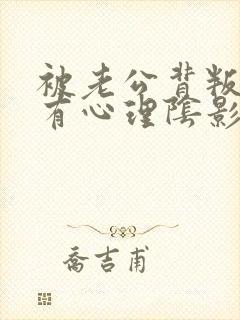 被老公背叛
有心理阴影
乔吉甫